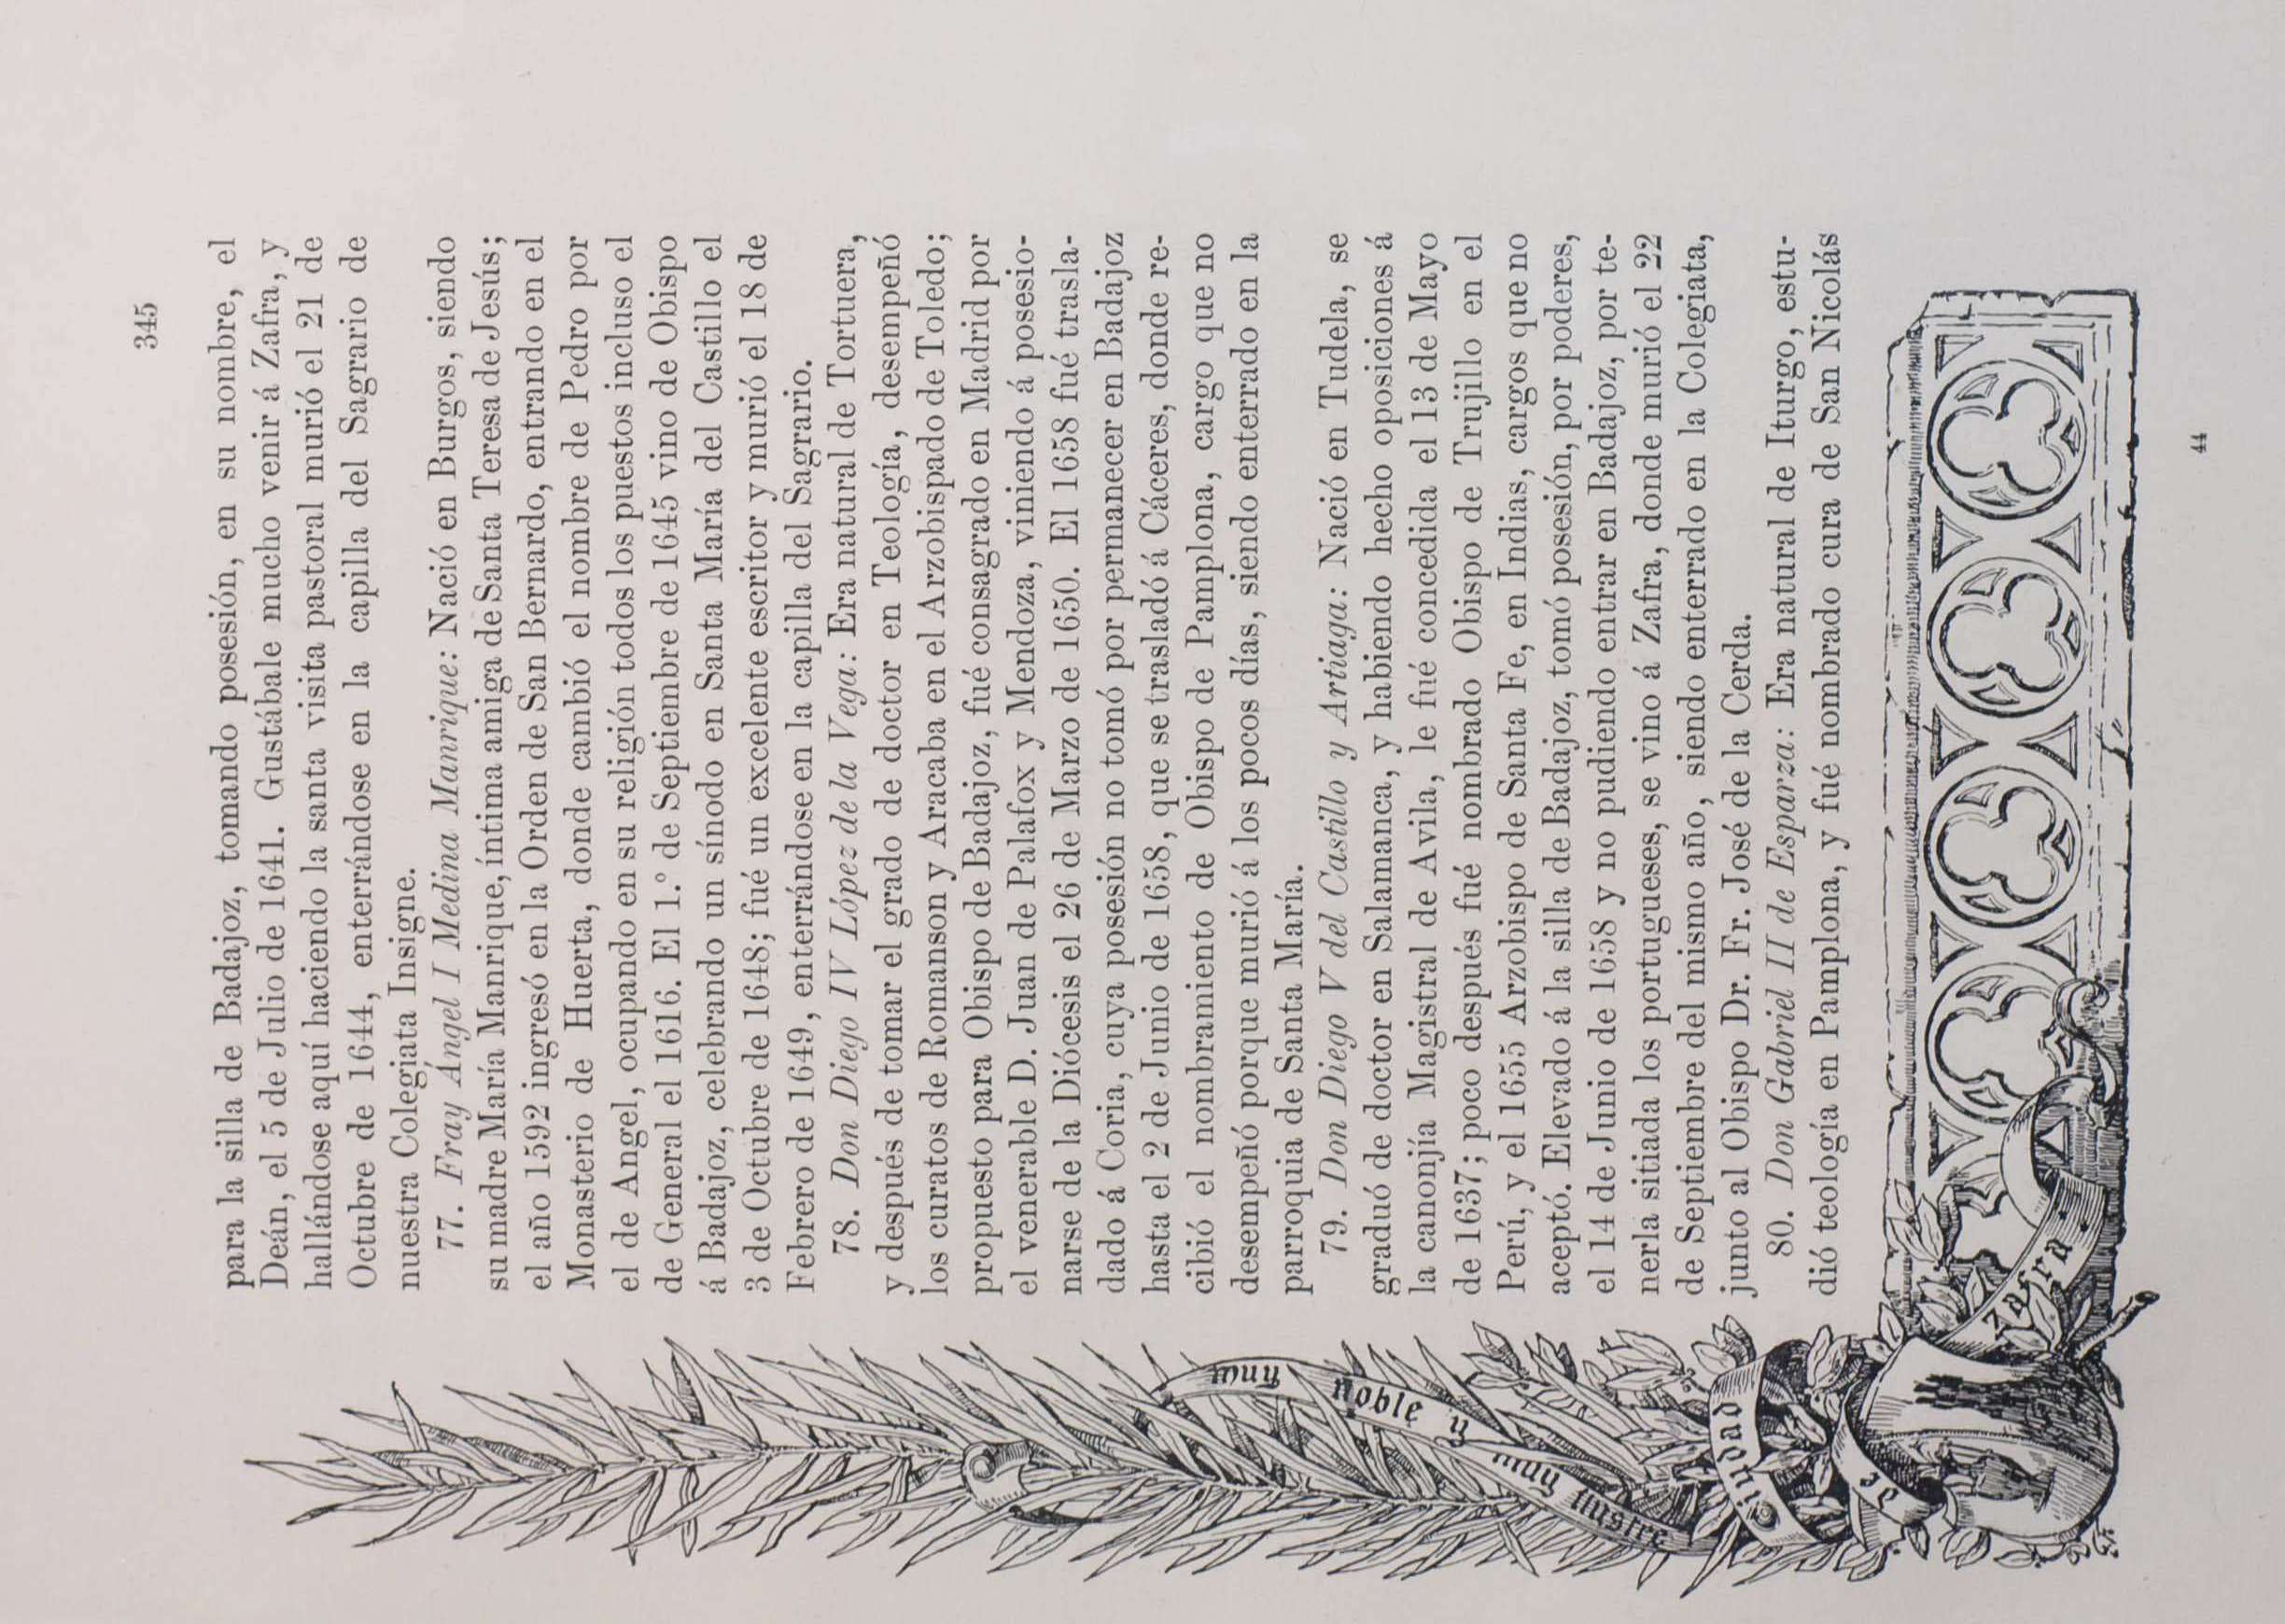 345
para la silla de Badajoz, tomando posesión, en su nombre, el
Deán, el 5 de Julio de 1641. Gustábale mucho venir á Zafra, y
hallándose aquí haciendo la santa visita pastoral murió el 21 de
Octubre de 1644, enterrándose en la capilla del Sagrario de
nuestra Colegiata Insigne.
77. Fray Ángel I Medina Manrique: Nació en Burgos, siendo
su madre María Manrique, íntima amiga de Santa Teresa de Jesús;
el año 1592 ingresó en la Orden de San Bernardo, entrando en el
Monasterio de Huerta, donde cambió el nombre de Pedro por
el de Angel, ocupando en su religión todos los puestos incluso el
de General el 1616. El 1.º de Septiembre de 1645 vino de Obispo
á Badajoz, celebrando un sínodo en Santa María del Castillo el
3 de Octubre de 1648; fué un excelente escritor y murió el 18 de
Febrero de 1649, enterrándose en la capilla del Sagrario.
78. Don Diego IV López de la Vega: Era natural de Tortuera,
y después de tomar el grado de doctor en Teología, desempeñó
los curatos de Romanson y Aracaba en el Arzobispado de Toledo;
propuesto para Obispo de Badajoz, fué consagrado en Madrid por
el venerable D. Juan de Palafox y Mendoza, viniendo á posesio-
narse de la Diócesis el 26 de Marzo de 1650. El 1658 fué trasla-
dado á Coria, cuya posesión no tomó por permanecer en Badajoz
hasta el 2 de Junio de 1658, que se trasladó á Cáceres, donde re-
cibió el nombramiento de Obispo de Pamplona, cargo que no
desempeñó porque murió á los pocos días, siendo enterrado en la
parroquia de Santa María.
79. Don Diego V del Castillo y Artiaga: Nació en Tudela, se
graduó de doctor en Salamanca, y habiendo hecho oposiciones á
la canonjía Magistral de Avila, le fué concedida el 13 de Mayo
de 1637; poco después fué nombrado Obispo de Trujillo en el
Perú, y el 1655 Arzobispo de Santa Fe, en Indias, cargos que no
aceptó. Elevado á la silla de Badajoz, tomó posesión, por poderes,
el 14 de Junio de 1658 y no pudiendo entrar en Badajoz, por te-
nerla sitiada los portugueses, se vino á Zafra, donde murió el 22
de Septiembre del mismo año, siendo enterrado en la Colegiata,
junto al Obispo Dr. Fr. José de la Cerda.
80. Don Gabriel II de Esparza: Era natural de Iturgo, estu-
dió teología en Pamplona, y fué nombrado cura de San Nicolás
muy
noble y
muy
ilustre
Ciudad
de
Zafra
44